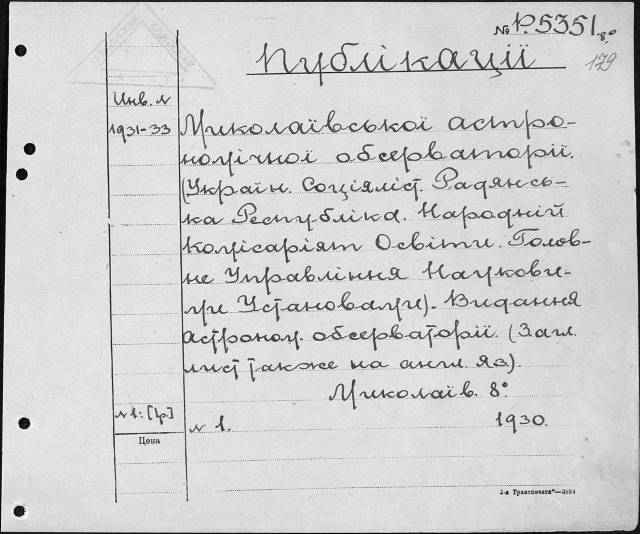 № P.5351 8°
179
Публікації
Инв. №
1931-33
Миколаївської астро-
номічної обсерваторії.
(Україн. Соціяліст. Радянсь-
ка Республіка. Народній
комісаріят Освіти. Голов-
не Управління Наукови-
ми Установами). Видання
астроном. обсерваторії. (Загл.
лист также на англ. яз).
Миколаїв. 8°
№ 1: [1р.]
№ 1. 1930.
Цена
2-я Транспечать"—3884